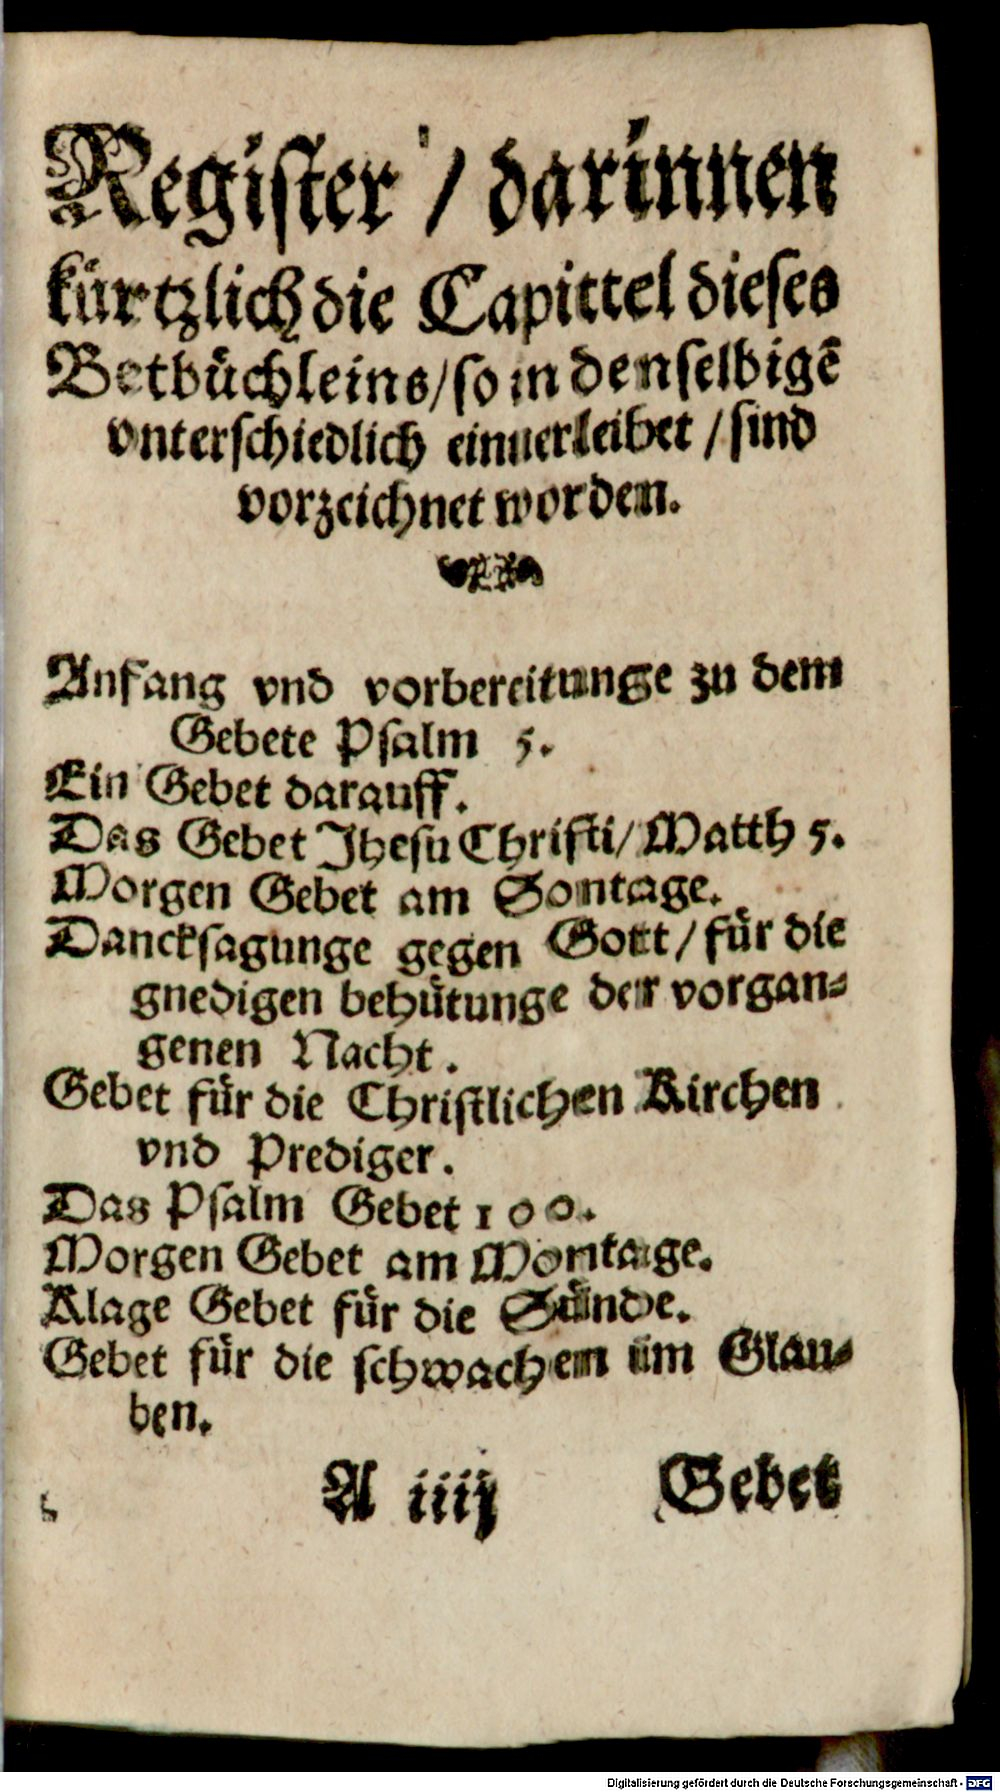 Register / darinnen
kürtzlich die Capittel dieses
Betbüchleins / so in denselbigē
vnterschiedlich einuerleibet / sind
vorzeichnet worden.
Anfang vnd vorbereitunge zu dem
Gebete Psalm 5.
Ein Gebet darauff.
Das Gebet Jhesu Christi / Matth 5.
Morgen Gebet am Sontage.
Dancksagunge gegen Gott / für die
gnedigen behütunge der vorgan-
genen Nacht.
Gebet für die Christlichen Kirchen
vnd Prediger.
Das Psalm Gebet 100.
Morgen Gebet am Montage.
Klage Gebet für die Sünde.
Gebet für die schwachen im Glau-
ben.
A iiij Gebet
Digitalisierung gefördert durch die Deutsche Forschungsgemeinschaft - DFG